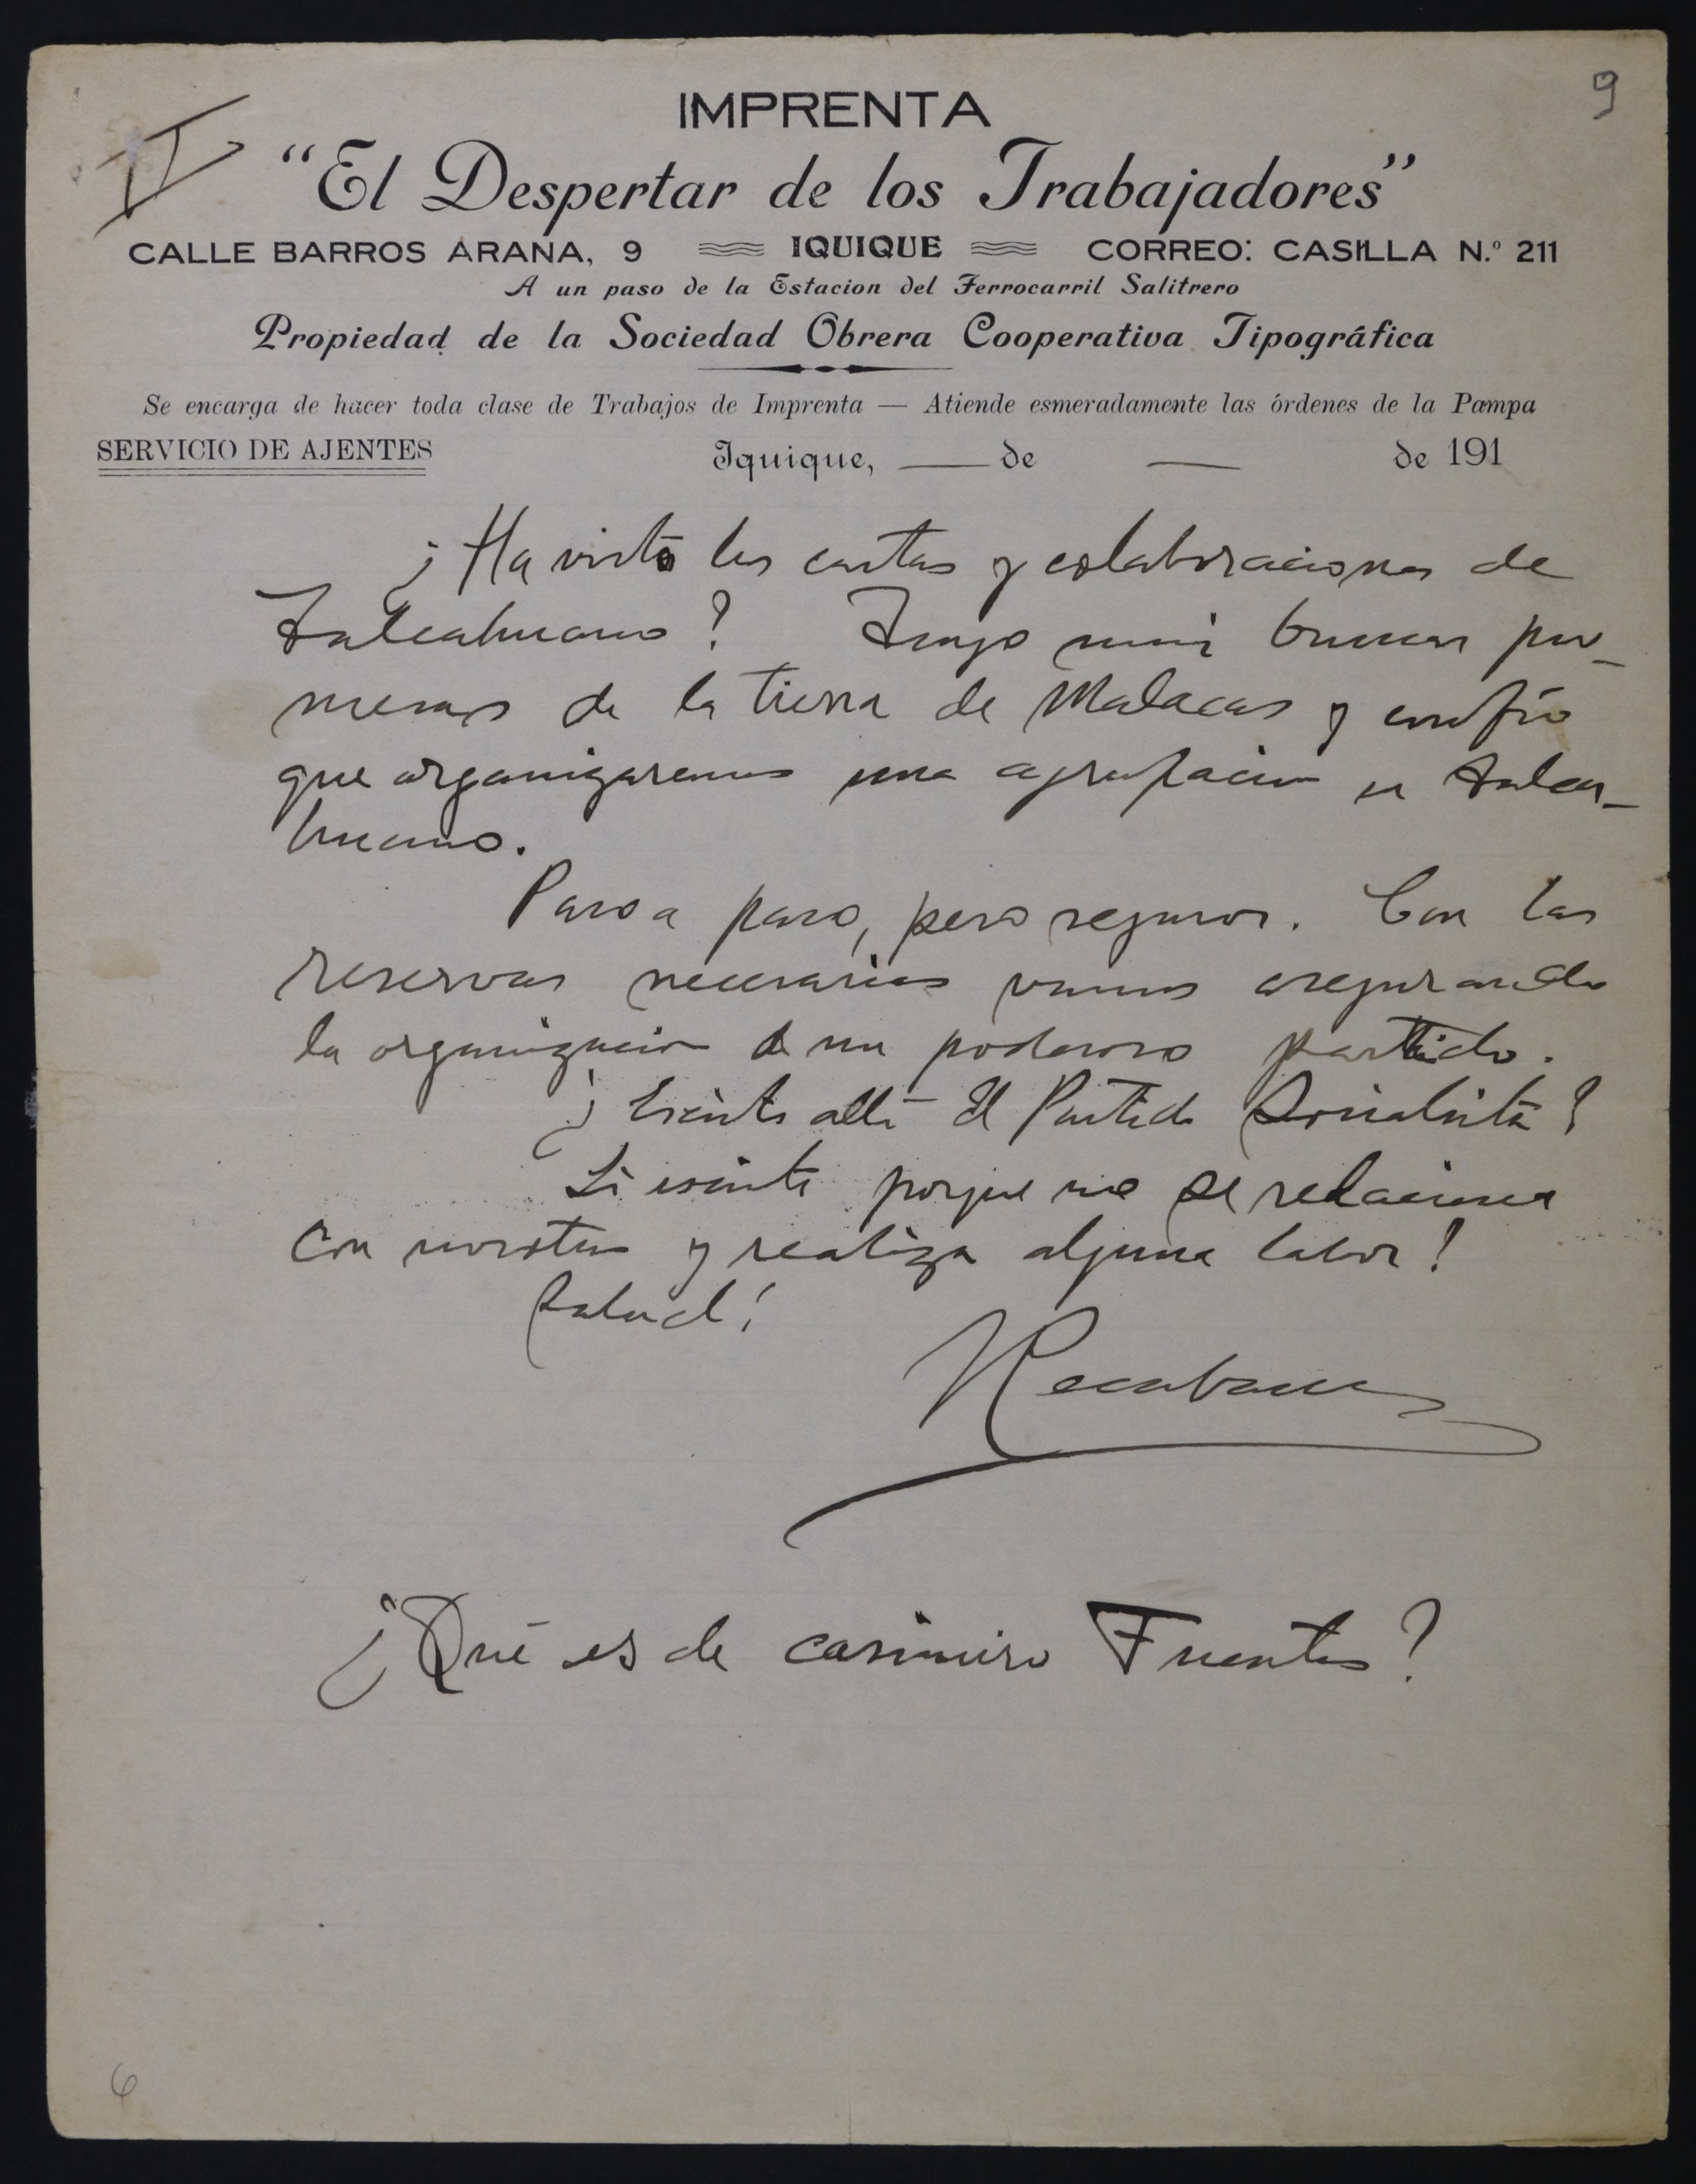 9
II
IMPRENTA
“El Despertar de los Trabajadores”
CALLE BARROS ARANA, 9 IQUIQUE CORREO: CASILLA N.º 211
A un paso de la Estacion del Ferrocarril Salitrero
Propiedad de la Sociedad Obrera Cooperativa Tipográfica
Se encarga de hacer toda clase de Trabajos de Imprenta — Atiende esmeradamente las órdenes de la Pampa
SERVICIO DE AJENTES Iquique, — de — de 191
¿Ha visto las cartas y colaboraciones de
Talcahuano? Tengo mui buenas pro-
mesas de la tierra de Malacas y confío
que organizaremos una agrupacion en Talca-
huano.
Paso a paso, pero seguros. Con las
reservas necesarias vamos asegurando
la organizacion de un poderoso partido.
¿Esiste allá el Partido Socialista?
Si esiste porque no se relaciona
con nosotros y realiza alguna labor!
Salud!
Recabarren
¿Qué es de casimiro Fuentes?
6